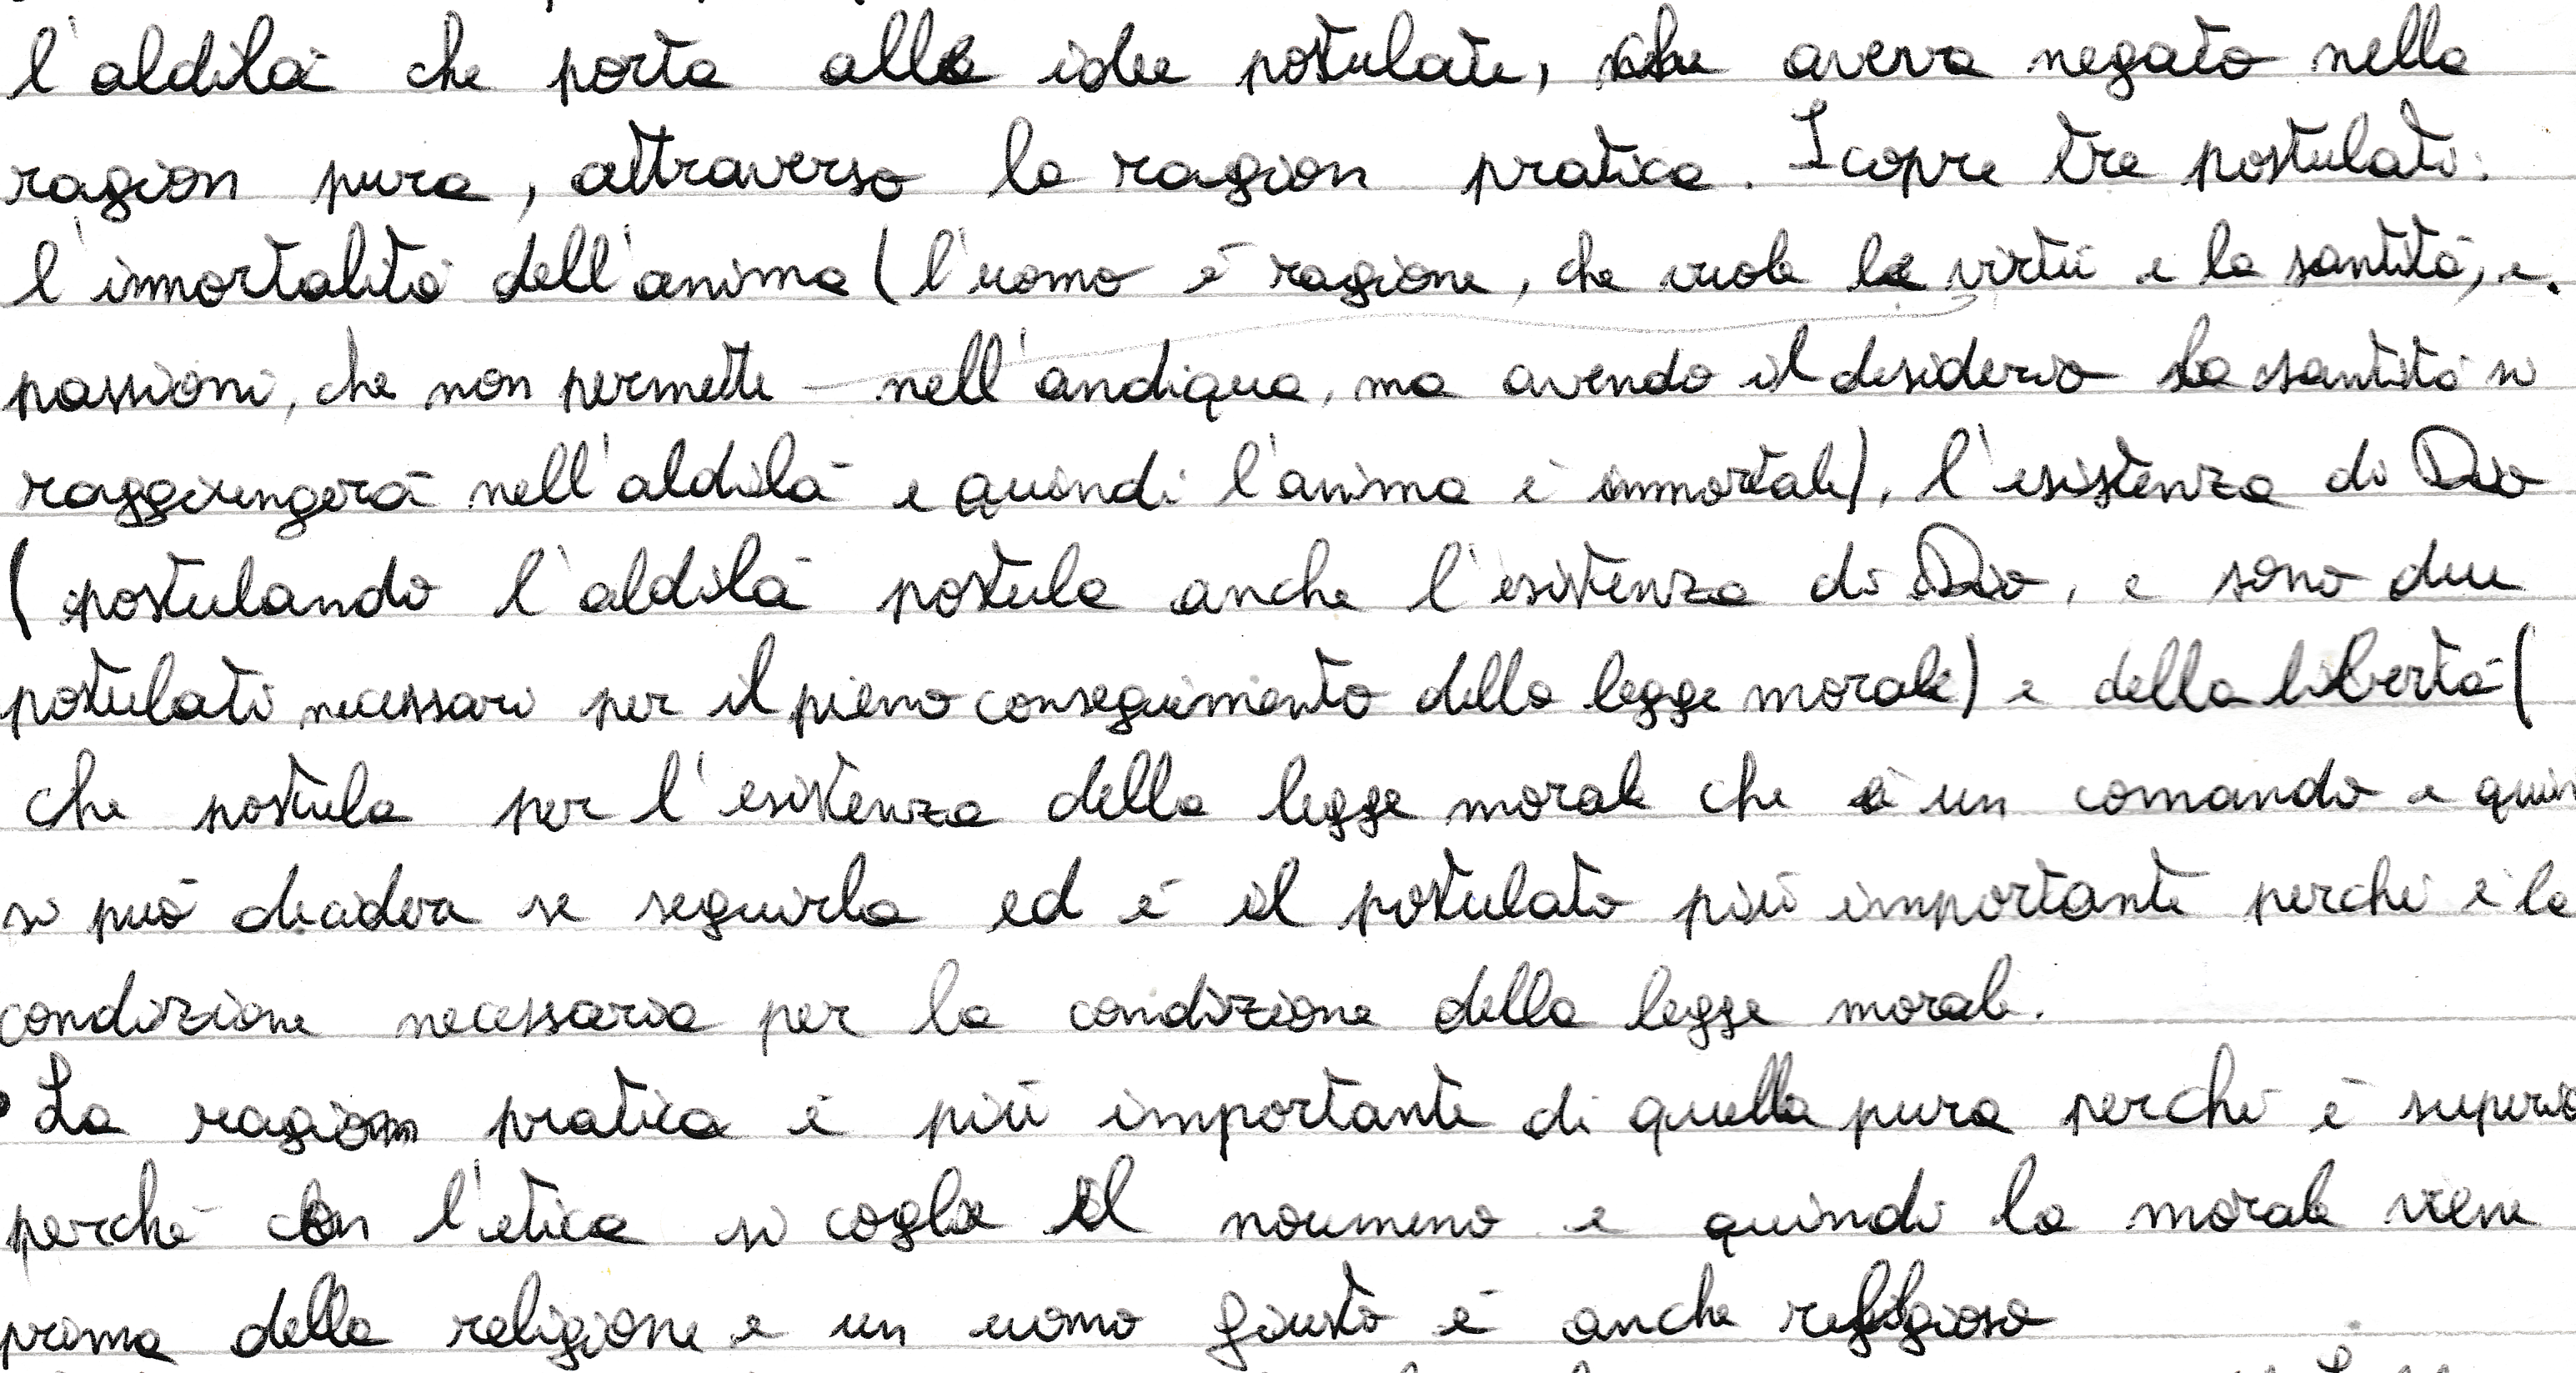 l'aldilà che porta alle idee postulate, che aveva negato nella
ragion pura, attraverso la ragion pratica. Scopre tre postulati:
l'immortalità dell'anima (l'uomo è ragione, che vuole la virtù e la santità, e
passioni, che non permette nell'aldiqua, ma avendo il desiderio la santità si
raggiungerà nell'aldilà e quindi l'anima è immortale), l'esistenza di Dio
(postulando l'aldilà postula anche l'esistenza di Dio, e sono due
postulati necessari per il pieno conseguimento della legge morale) e della libertà (
che postula per l'esistenza della legge morale che è un comando e quin
si può decidere se seguirla ed è il postulato più importante perché è la
condizione necessaria per la condizione della legge morale.
La ragion pratica è più importante di quella pura perché è superio
perché con l'etica si coglie il noumeno e quindi la morale viene
prima della religione e un uomo giusto è anche religioso